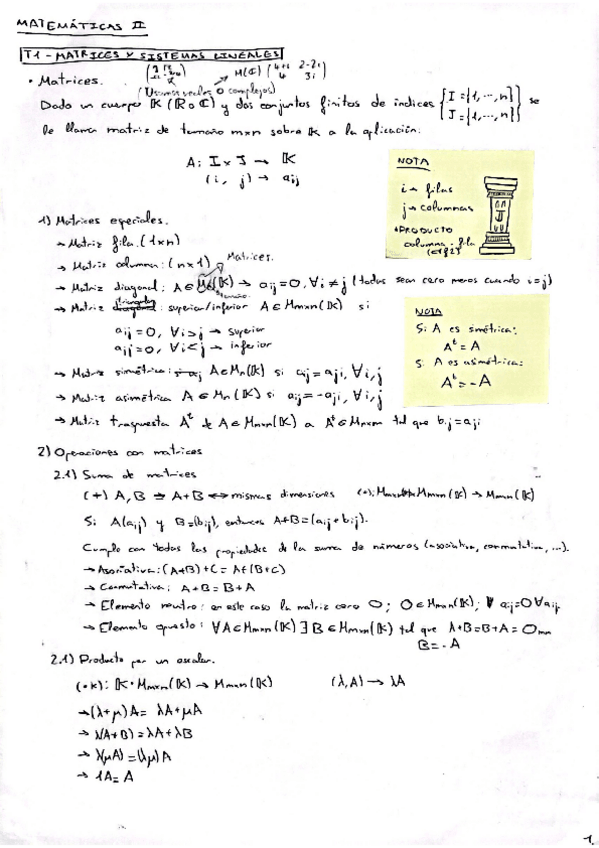 MATEMÁTICAS II
T1 - MATRICES Y SISTEMAS LINEALES
• Matrices.
(Usamos reales o complejos)
M(ℂ) (4+i 2-2i
4 3i)
Dado un cuerpo 𝕂 (ℝ o ℂ) y dos conjuntos finitos de índices {I={1,...,m} J={1,...,n}} se
le llama matriz de tamaño m×n sobre 𝕂 a la aplicación:
A: I × J → 𝕂
(i, j) → aij
NOTA
i → filas
j → columnas
*PRODUCTO
columna · fila
1) Matrices especiales.
→ Matriz fila: (1×n)
→ Matriz columna: (n×1)
Matrices.
→ Matriz diagonal: A ∈ Mn(𝕂) → aij = 0, ∀i ≠ j (todos sean cero menos cuando i=j)
tamaño
→ Matriz triangular: superior/inferior A ∈ Mmxn(𝕂) si
aij = 0, ∀i > j → superior
aij = 0, ∀i < j → inferior
NOTA
Si A es simétrica:
Aᵗ = A
Si A es asimétrica:
Aᵗ = -A
→ Matriz simétrica: A ∈ Mn(𝕂) si aij = aji, ∀i,j
→ Matriz asimétrica A ∈ Mn(𝕂) si aij = -aji, ∀i,j
→ Matriz traspuesta Aᵗ de A ∈ Mmxn(𝕂) a Aᵗ ∈ Mnxm tal que bij = aji
2) Operaciones con matrices
2.1) Suma de matrices
(+) A, B ⇒ A+B ⇔ mismas dimensiones (+): Mmxn × Mmxn(𝕂) → Mmxn(𝕂)
Si A(aij) y B=(bij), entonces A+B = (aij + bij).
Cumple con todas las propiedades de la suma de números (asociativa, conmutativa, ...).
→ Asociativa: (A+B)+C = A+(B+C)
→ Conmutativa: A+B = B+A
→ Elemento neutro: en este caso la matriz cero O; O ∈ Mmxn(𝕂); aij = 0 ∀aij
→ Elemento opuesto: ∀A ∈ Mmxn(𝕂) ∃ B ∈ Mmxn(𝕂) tal que A+B = B+A = Omn
B = -A
2.1) Producto por un escalar.
(·k): 𝕂 · Mmxn(𝕂) → Mmxn(𝕂) (λ, A) → λA
→ (λ+μ)A = λA + μA
→ λ(A+B) = λA + λB
→ λ(μA) = (λμ)A
→ 1A = A
1.